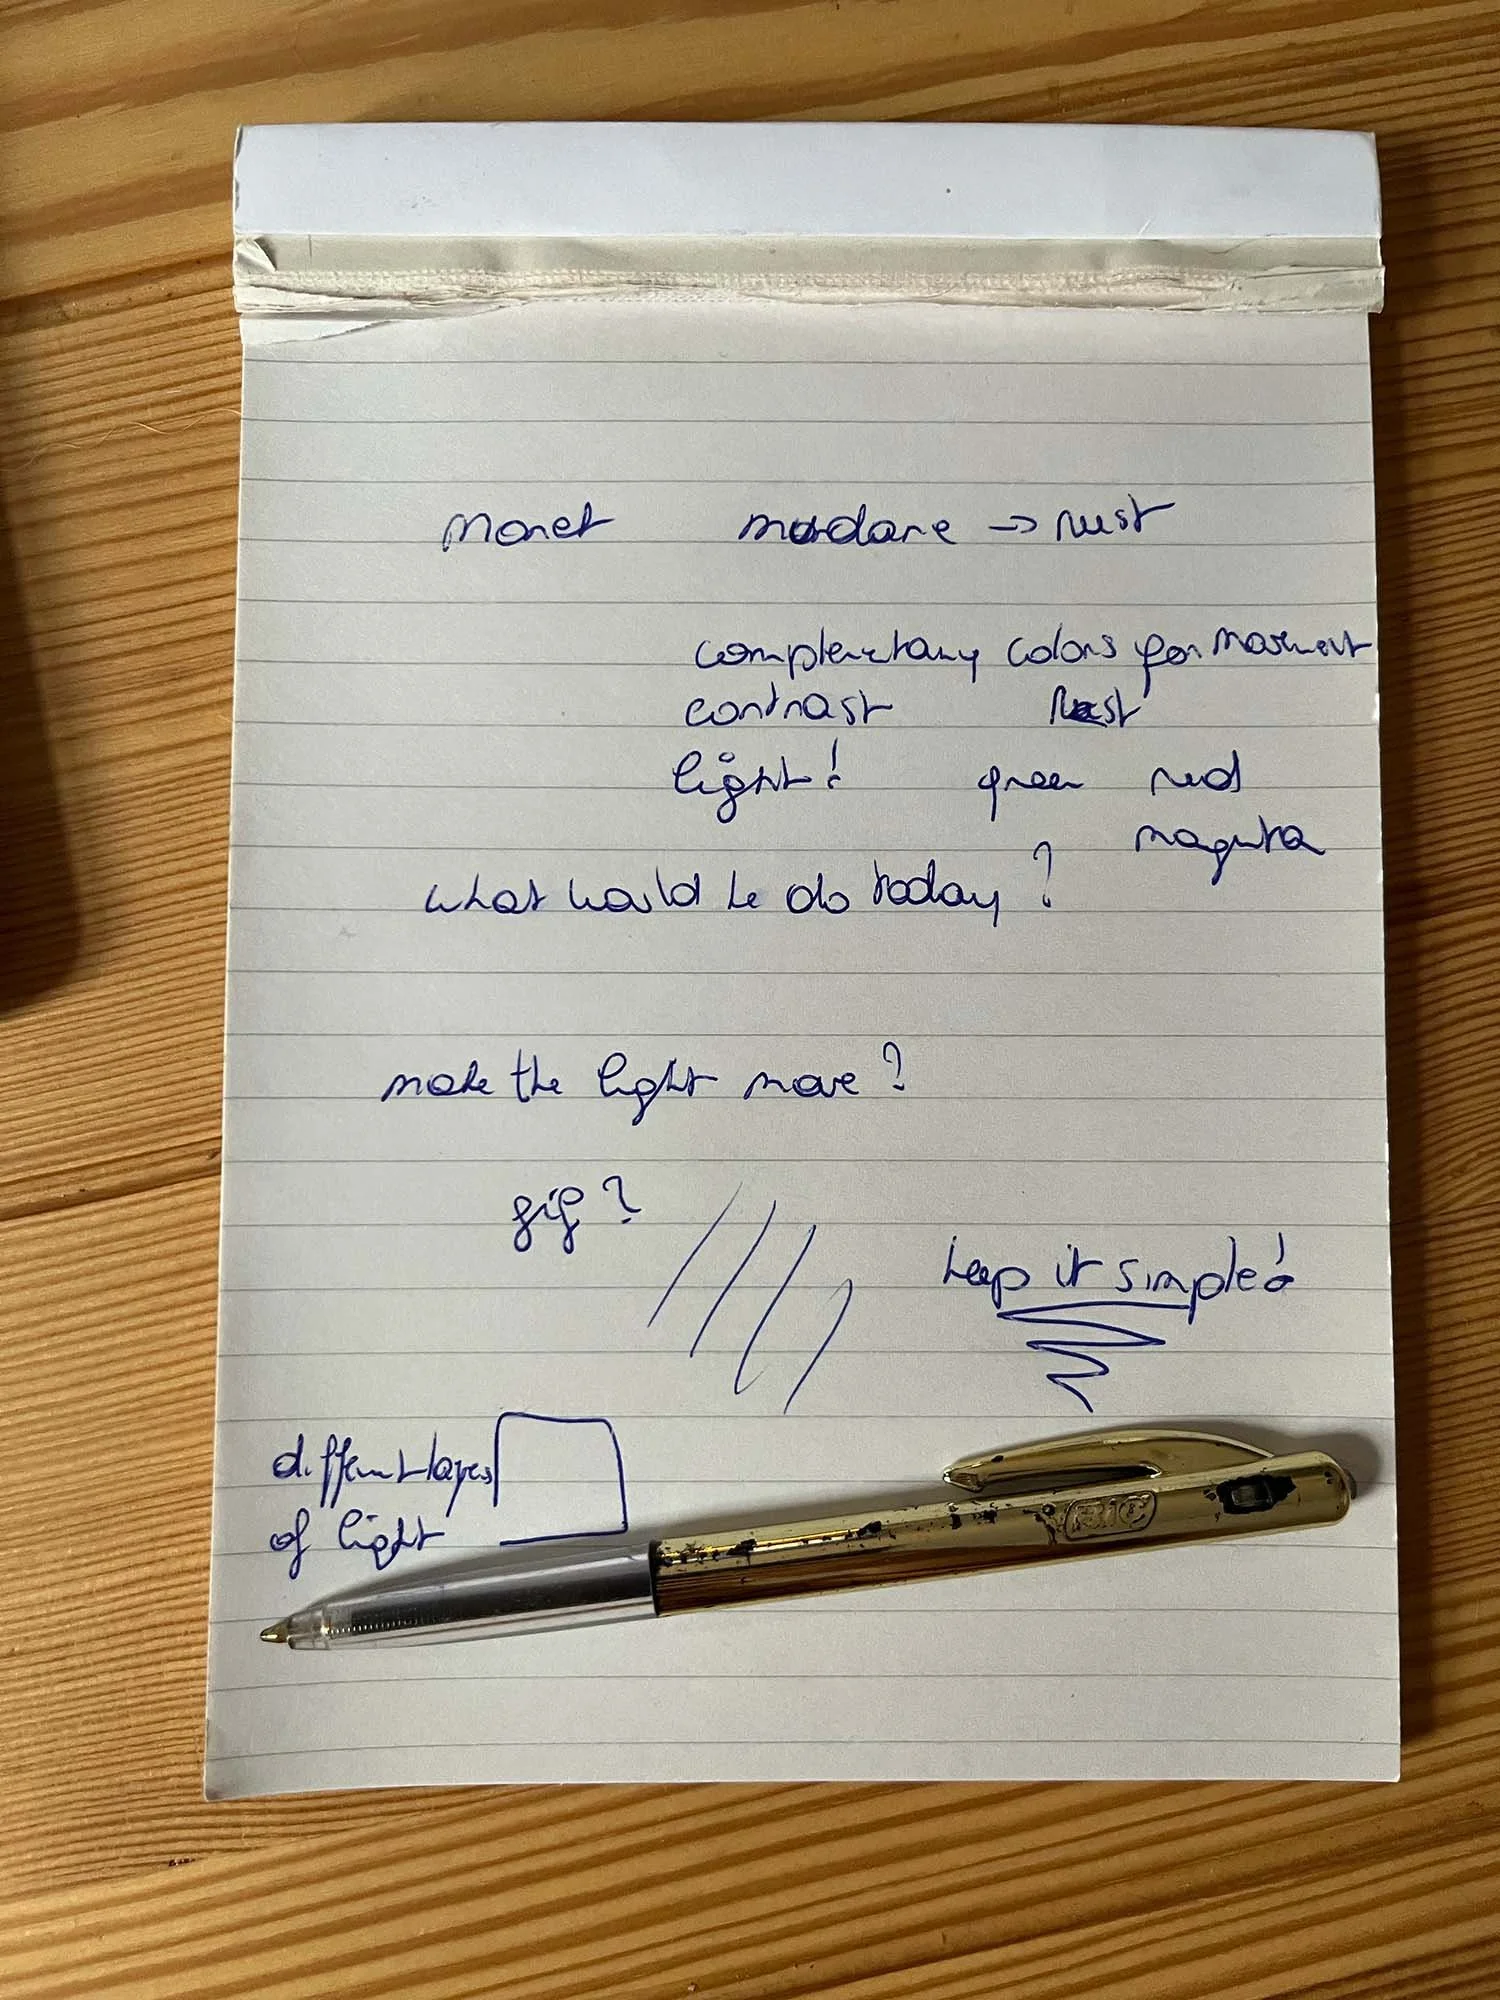 Monet mundane -> rust
complementary colors for movement
contrast rust
light! green red
magenta
what would he do today?
make the light move?
gif?
keep it simple!
different layers
of light
BIC